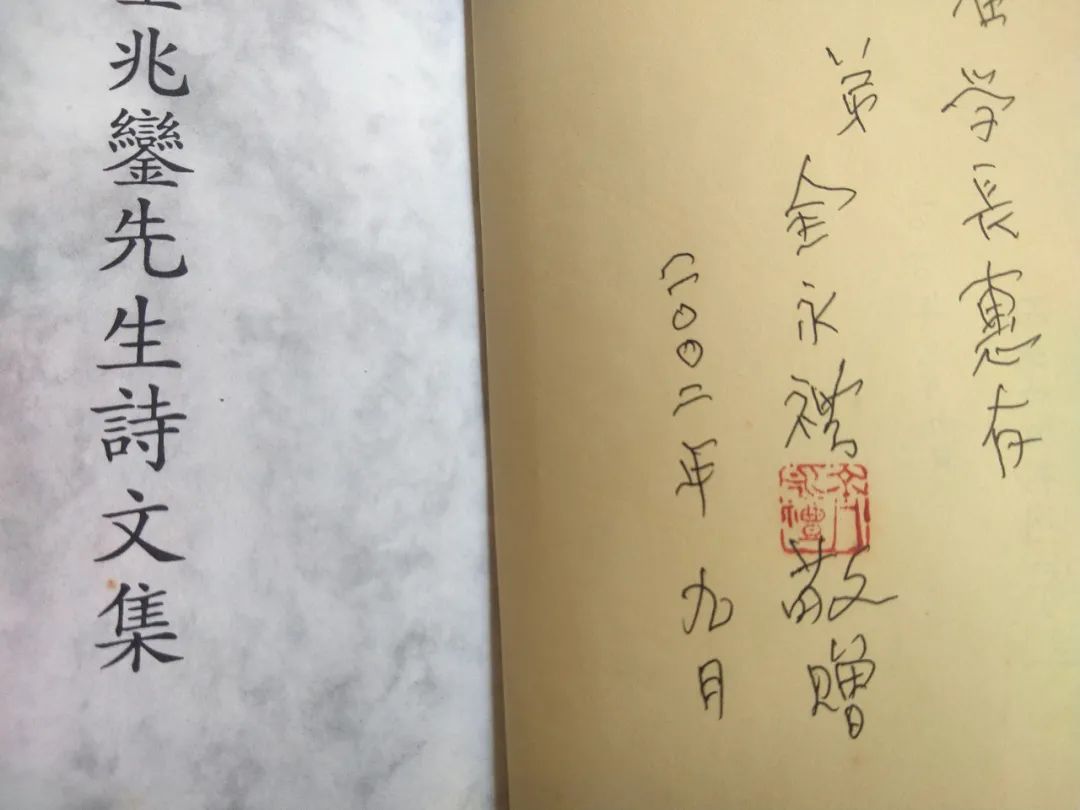 兆鑾先生詩文集
学長惠存
弟 金永禮 敬贈
二〇〇二年九月